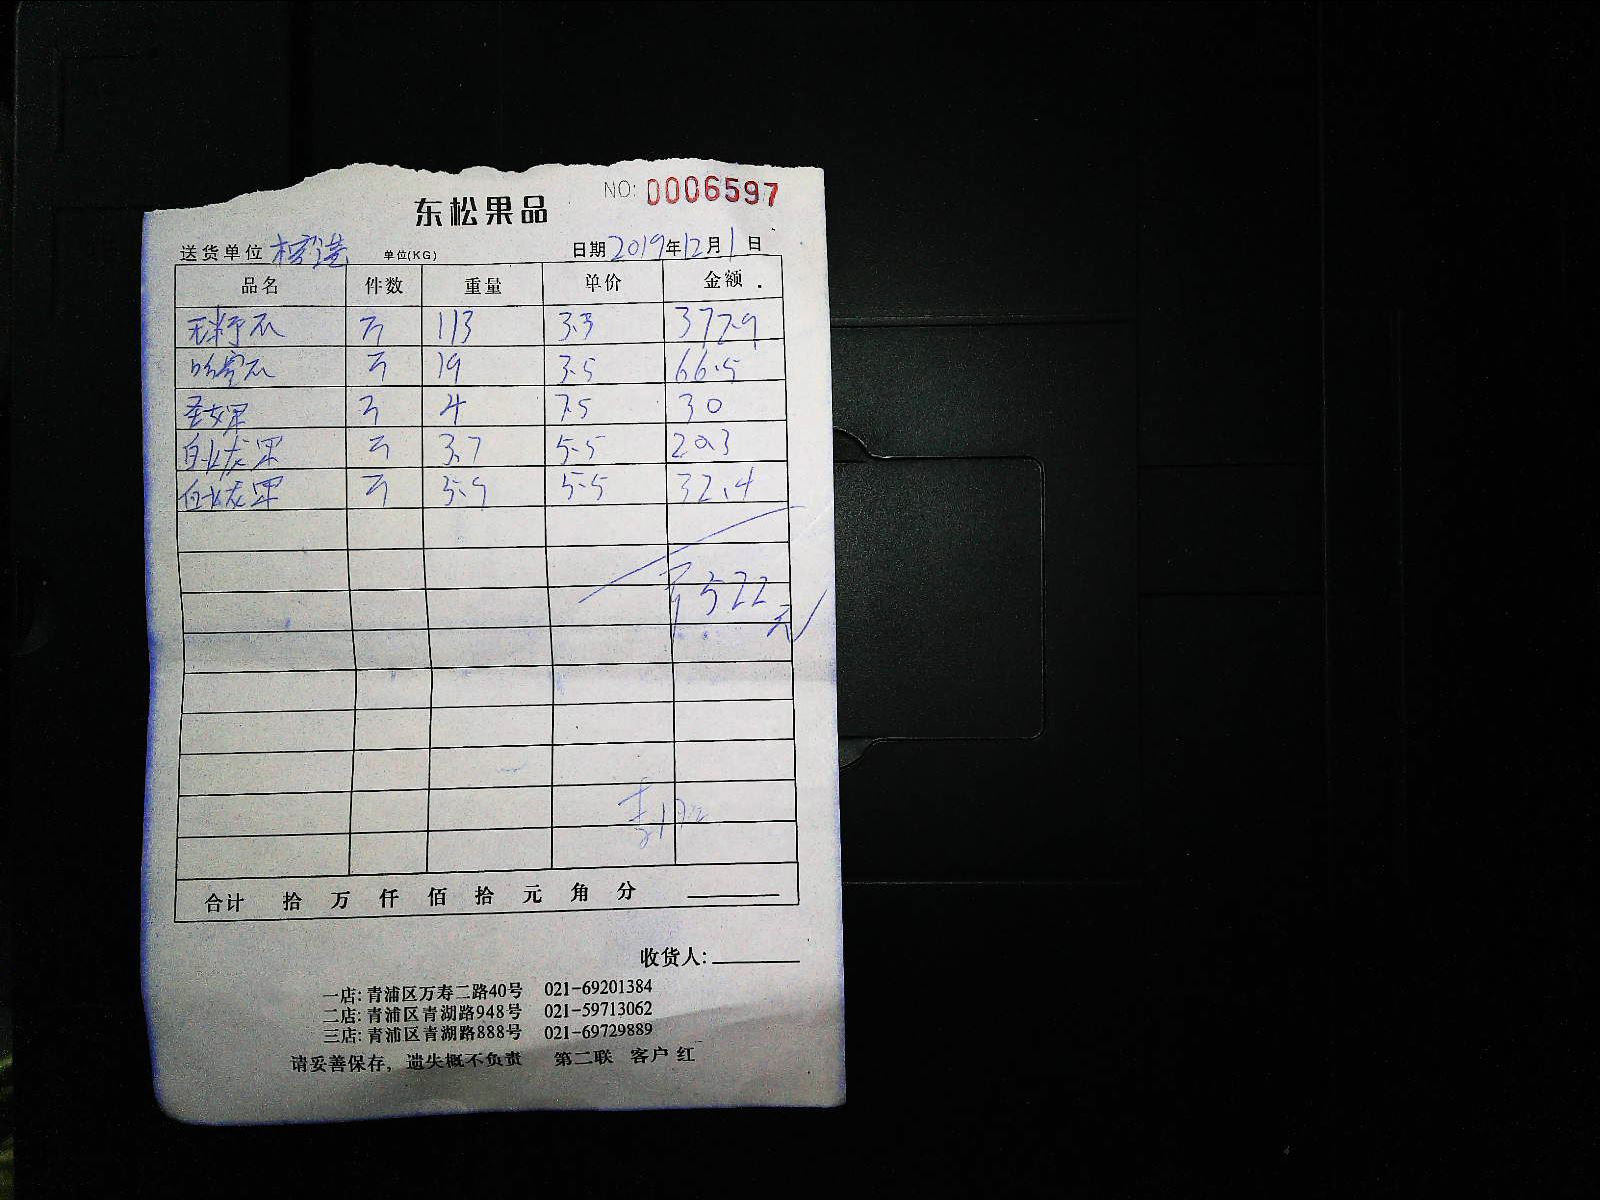 NO: 0006597
东松果品
送货单位 单位(KG) 日期 2019年12月1日
品名 件数 重量 单价 金额
无籽瓜 113 3.3 372.9
哈密瓜 19 3.5 66.5
圣女果 4 7.5 30
白火龙果 3.7 5.5 20.3
白火龙果 5.9 5.5 32.4
522元
合计 拾 万 仟 佰 拾 元 角 分
收货人:
一店: 青浦区万寿二路40号 021-69201384
二店: 青浦区青湖路948号 021-59713062
三店: 青浦区青湖路888号 021-69729889
请妥善保存，遗失概不负责 第二联 客户 红